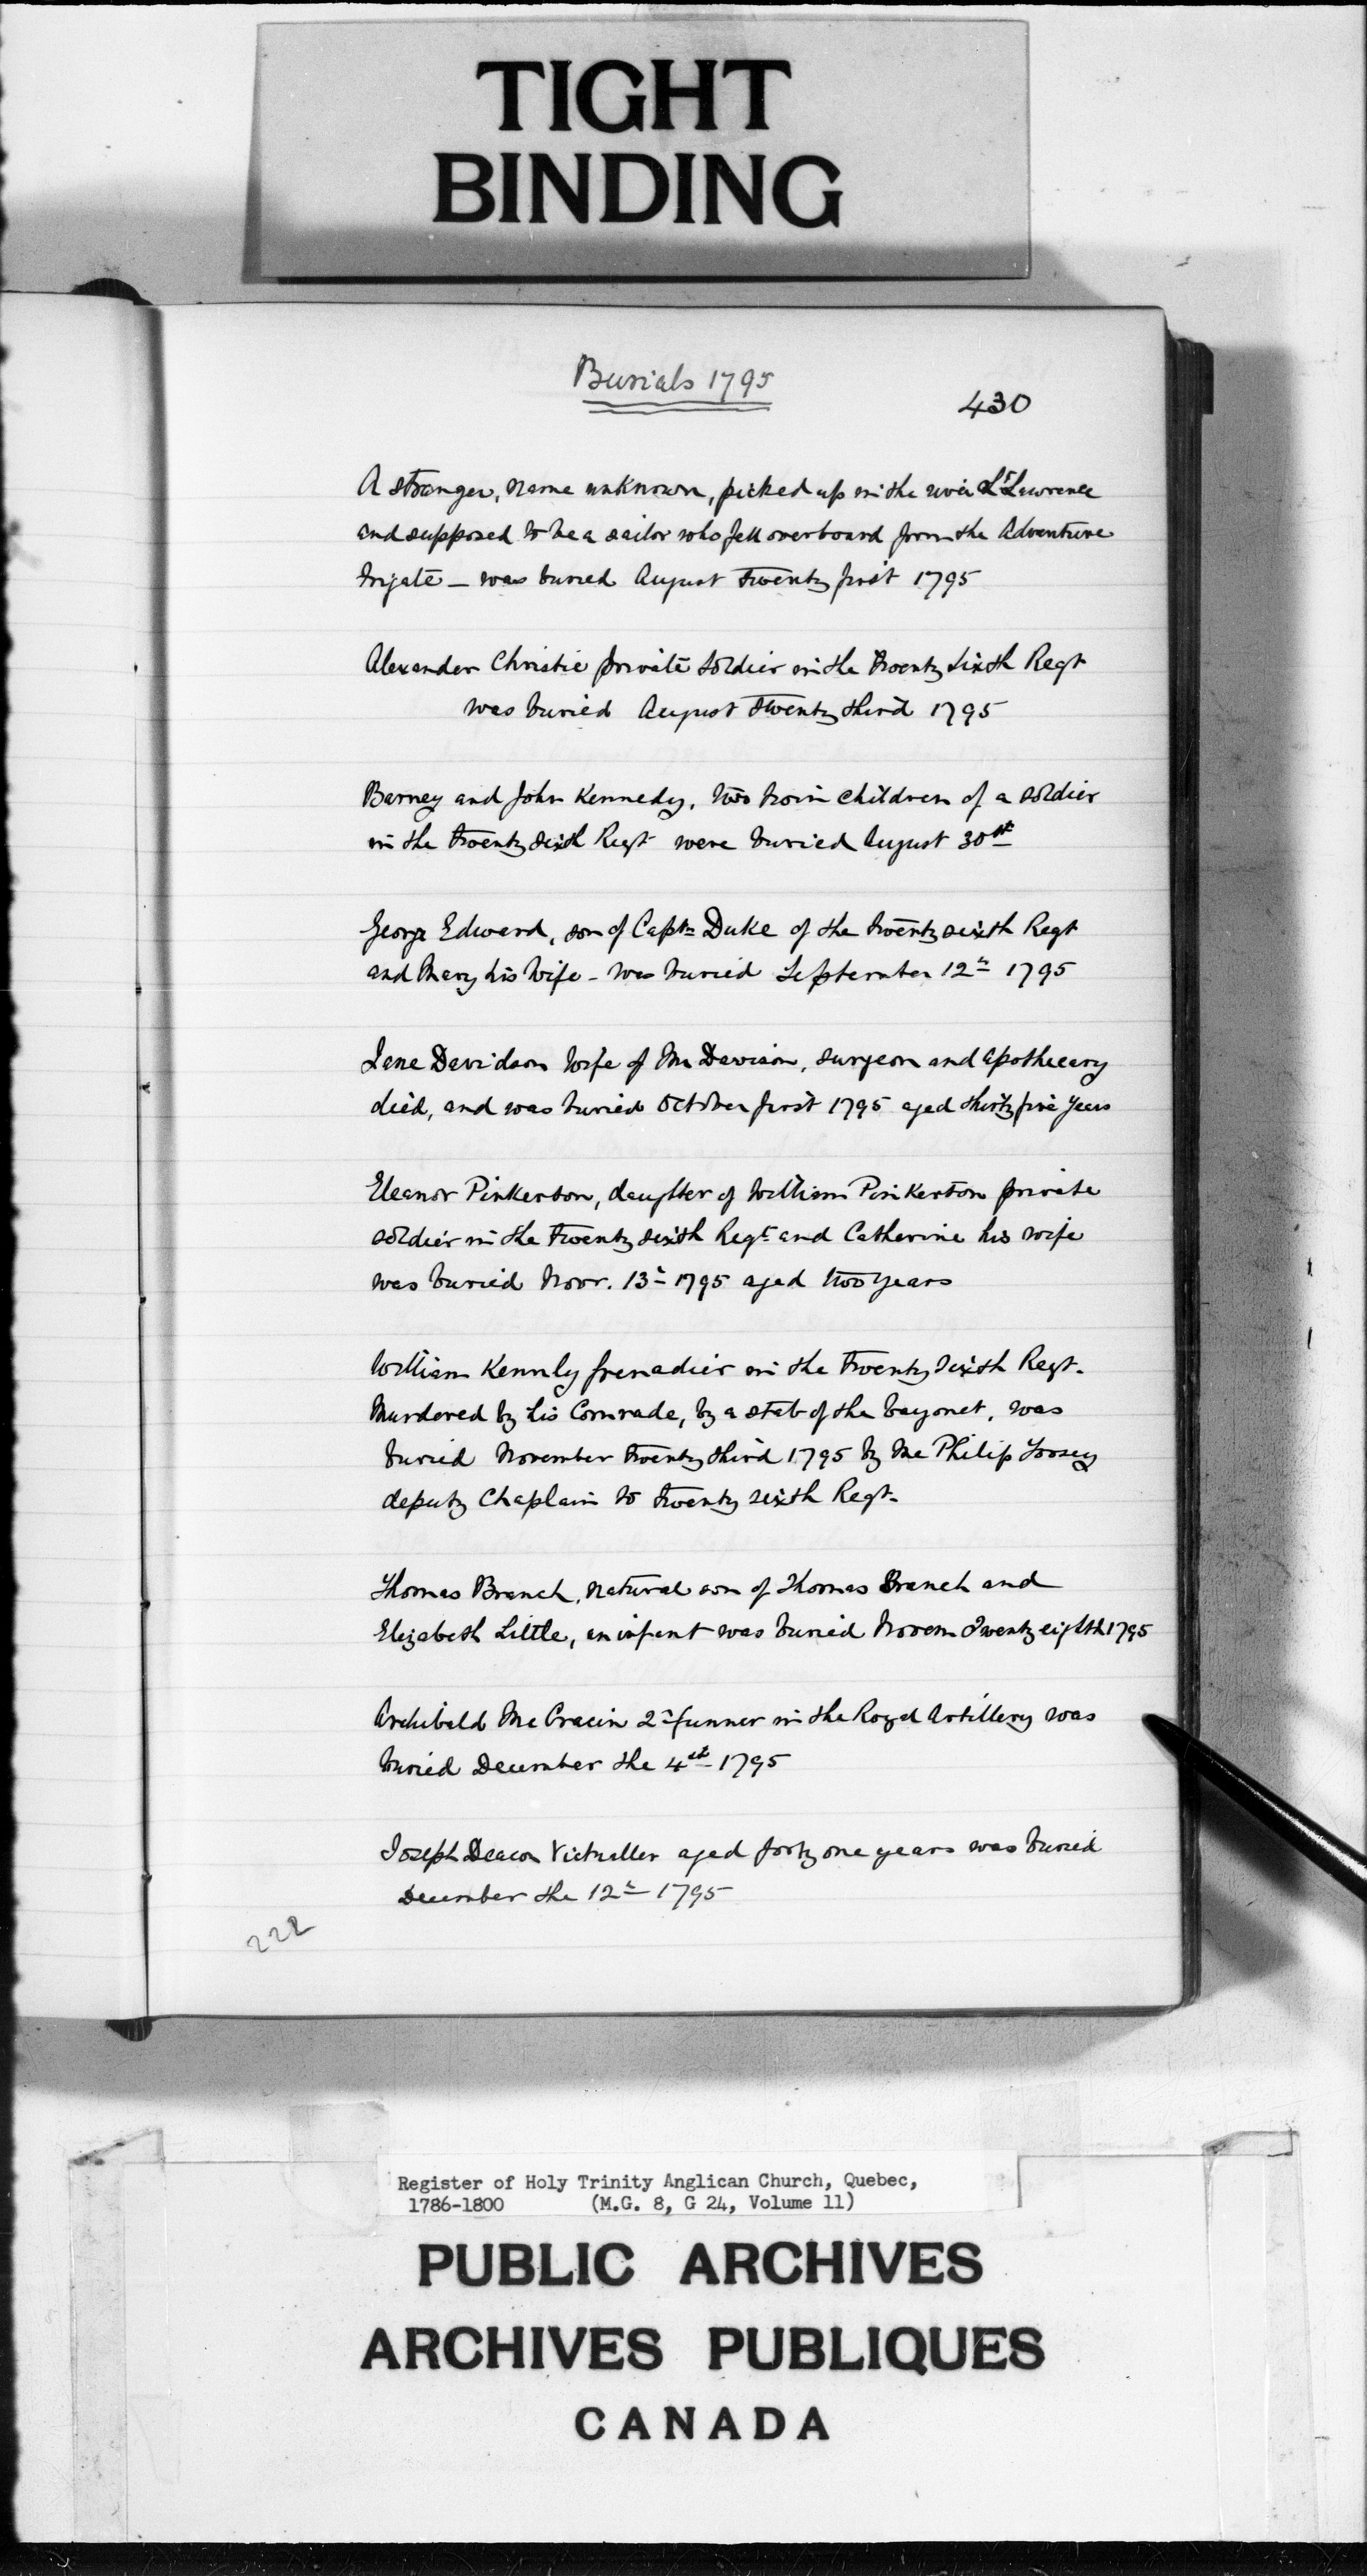 TIGHT
BINDING
Burials 1795
430
A stranger, name unknown, picked up in the river St Lawrence
and supposed to be a sailor who fell overboard from the Adventure
frigate – was buried August twenty first 1795
Alexander Christie private soldier in the twenty sixth Regt
was buried August twenty third 1795
Barney and John Kennedy, two twin children of a soldier
in the twenty sixth Regt were buried August 30th
George Edward, son of Captn Duke of the twenty sixth Regt
and Mary his wife – was buried September 12th 1795
Jane Davidson wife of Mr Davison, surgeon and apothecary
died, and was buried October first 1795 aged thirty five years
Eleanor Pinkerton, daughter of William Pinkerton private
soldier in the twenty sixth Regt and Catherine his wife
was buried Novr. 13th 1795 aged two years
William Kennly grenadier in the twenty sixth Regt.
Murdered by his Comrade, by a stab of the bayonet, was
buried November twenty third 1795 by me Philip Toosey
deputy Chaplain to twenty sixth Regt.
Thomas Branch, natural son of Thomas Branch and
Elizabeth Little, an infant was buried Novem twenty eighth 1795
Archibald Mc 2d gunner in the Royal Artillery was
buried December the 4th 1795
Joseph Deacon Victualler aged forty one years was buried
December the 12th 1795
222
Register of Holy Trinity Anglican Church, Quebec,
1786-1800 (M.G. 8, G 24, Volume 11)
PUBLIC ARCHIVES
ARCHIVES PUBLIQUES
CANADA